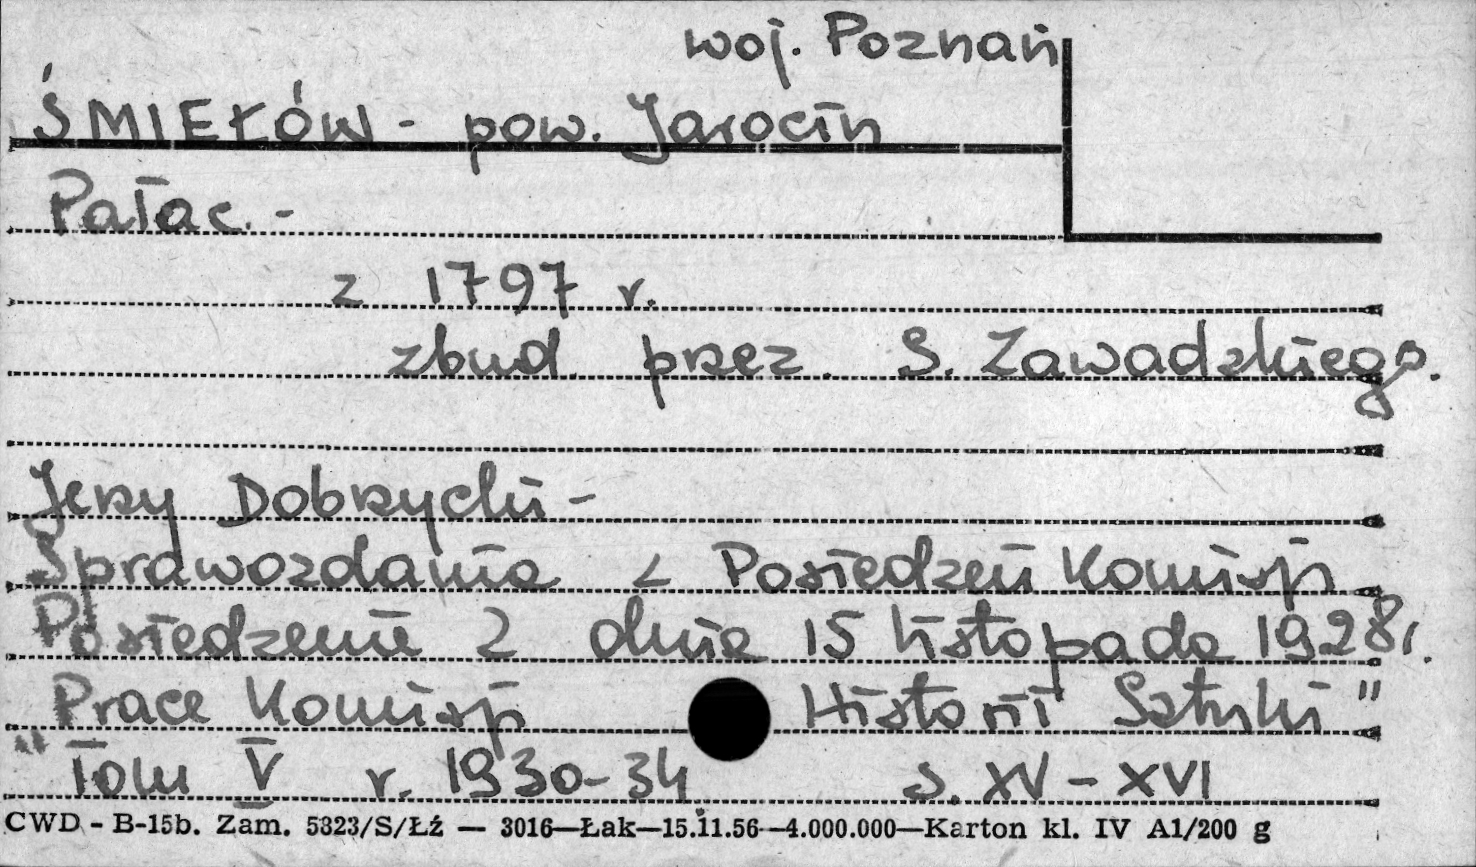 woj. Poznań
ŚMIEŁÓW - pow. Jarocin
Pałac. -
z 1797 r.
zbud. przez. S. Zawadzkiego.
Jerzy Dobrzycki -
Sprawozdania z Posiedzeń Komisji
Posiedzenie z dnia 15 listopada 1928 r.
Prace Komisji Historii Sztuki"
"Tom V r. 1930-34 s. XV - XVI
CWD - B-15b. Zam. 5323/S/Łź — 3016—Łak—15.11.56—4.000.000—Karton kl. IV A1/200 g